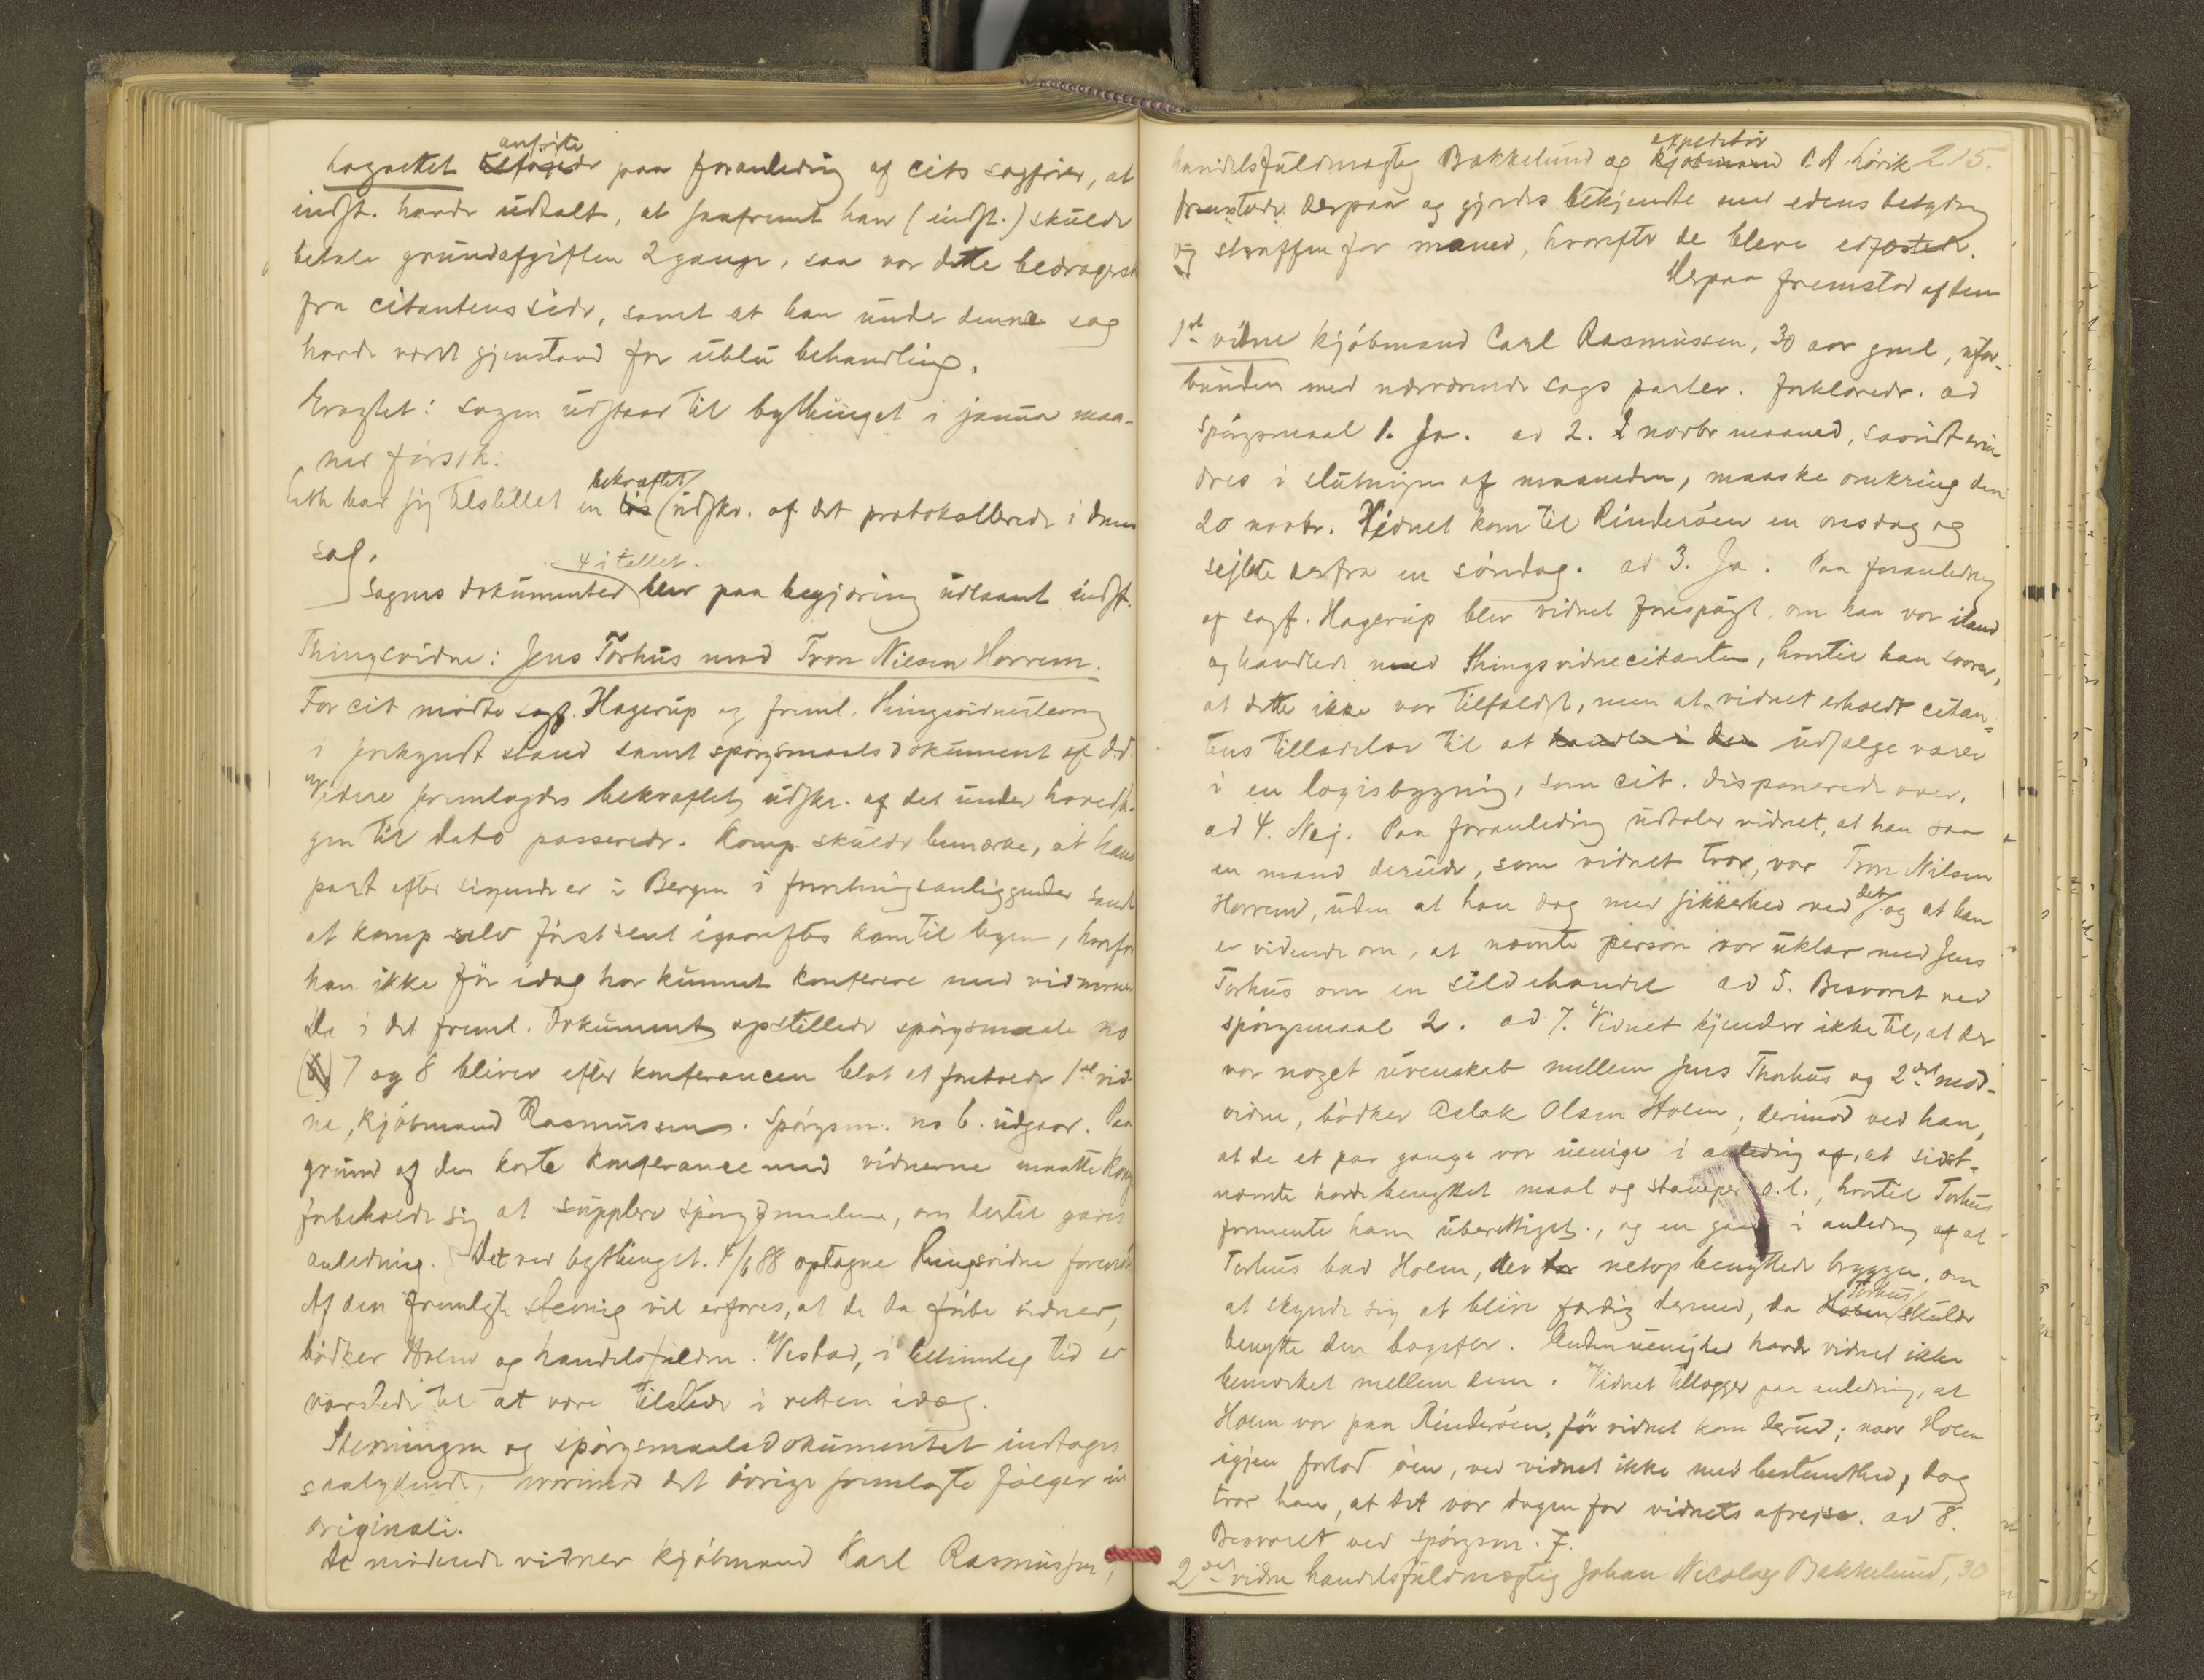 anførte
Lagrettet tilføiede paa foranledning af cits sagfører, at
indst. havde udtalt, at saafremt han (indst.) skulde
betale grundafgiften 2 gange, saa var dette bedrageri
fra citantens side, samt at han under denne sag
havde været gjenstand for ublu behandling.
Eragtet: sagen udstaar til bythinget i januar maa-
ned førstk.
bekræftet
Citn har sig tilstillet en løs udskr. af det protokollerede i denne
sag.
4 i tallet.
Sagens dokumenter blev paa begjæring udlaant indst.
Thingsvidne: Jens Torhus mod Tron Nielsen Horrem.
For cit mødte sagf. Hagerup og freml. thingsvidnestevning
i forkyndt stand samt spørgsmaalsdokument af d.d.
Videre fremlagdes bekræftet udskr. af det under hovedsa-
gen til dato passerede. Komp. skulde bemærke, at hans
part efter sigende er i Bergen i forretningsanliggender samt
at komp selv først sent igaaraftes kom til byen, hvorfor
han ikke før idag har kunnet konferere med vidnerne
De i det freml. dokument opstillede spørgsmaale no
(6) 7 og 8 bliver efter konferancen blot at foreholde 1ste vid-
ne, kjøbmand Rasmussen. Spørgsm. no 6. udgaar. Paa
grund af den korte konferance med vidnerne maatte komp
forbeholde sig at supplere spørgsmaalene, om dertil gaves
anledning. Det ved bythinget 4/6 88 optagne thingsvidne
Af den fremlagte stevning vil erfares, at de da førte vidner,
bødker Holm og handelsfuldm. Vestad, i betimelig tid er
varslede til at være tilstede i retten idag.
Stevningen og spørgsmaalsdokumentet indtages
saalydende, hvorimod det øvrige fremlagte følger in
originali.
De mødende vidner kjøbmand Karl Rasmussen,
expeditør
handelsfuldmægtig Bakkelund og kjøbmand P. A. Lørik 215.
fremstode derpaa og gjordes bekjendte med edens betydning
og straffen for mened, hvorefter de bleve edfæstede.
Herpaa fremstod af dem
1ste vidne kjøbmand Carl Rasmussen, 30 aar gml, ufor-
bunden med nærværende sags parter. forklarede. ad
Spørgsmaal 1. Ja. ad 2. I novbr maaned, saavidt erin-
dres i slutningen af maaneden, maaske omkring den
20 novbr. Vidnet kom til Rinderøen en onsdag og
sejlte derfra en søndag. ad 3. Ja. Paa foranledning
af sagf. Hagerup blev vidnet forespurgt, om han var iland
og handlede med thingsvidnecitanten, hvortil han svarer,
at dette ikke var tilfældet, men at vidnet erholdt citan-
tens tilladelse til at handle i den udsælge varer
i en logisbygning, som cit. disponerede over.
ad 4. Nej. Paa foranledning udtaler vidnet, at han saa
en mand derude, som vidnet tror, var Tron Nilsen
Horrem, uden at han dog med sikkerhed ved det og at han
er vidende om, at nævnte person var uklar med Jens
Torhus om en sildehandel ad 5. Besvaret ved
spørgsmaal 2. ad 7. Vidnet kjender ikke til, at der
var noget uvenskab mellem Jens Thorhus og 2det med-
vidne, bødker Aslak Olsen Holm, derimod ved han,
at de et par gange var uenige i anledning af, at sidst-
nævnte havde benyttet maal og stamper o.l., hvortil Torhus
formente ham uberettiget, og en gang i anledning af at
Torhus bad Holm, der netop benyttede bryggen, om
Torhus
at skynde sig at blive færdig dermed, da Holm skulde
benytte den bagefter. Anden uenighed havde vidnet ikke
bemærket mellem dem. Vidnet tillægger paa anledning, at
Holm var paa Rinderøen, før vidnet kom derud; naar Holm
igjen forlod øen, ved vidnet ikke med bestemthed, dog
tror han, at det var dagen før vidnets afrejse. ad 8.
Besvaret ved spørgsm. 7.
2det vidne handelsfuldmægtig Johan Nicolay Bakkelund, 30